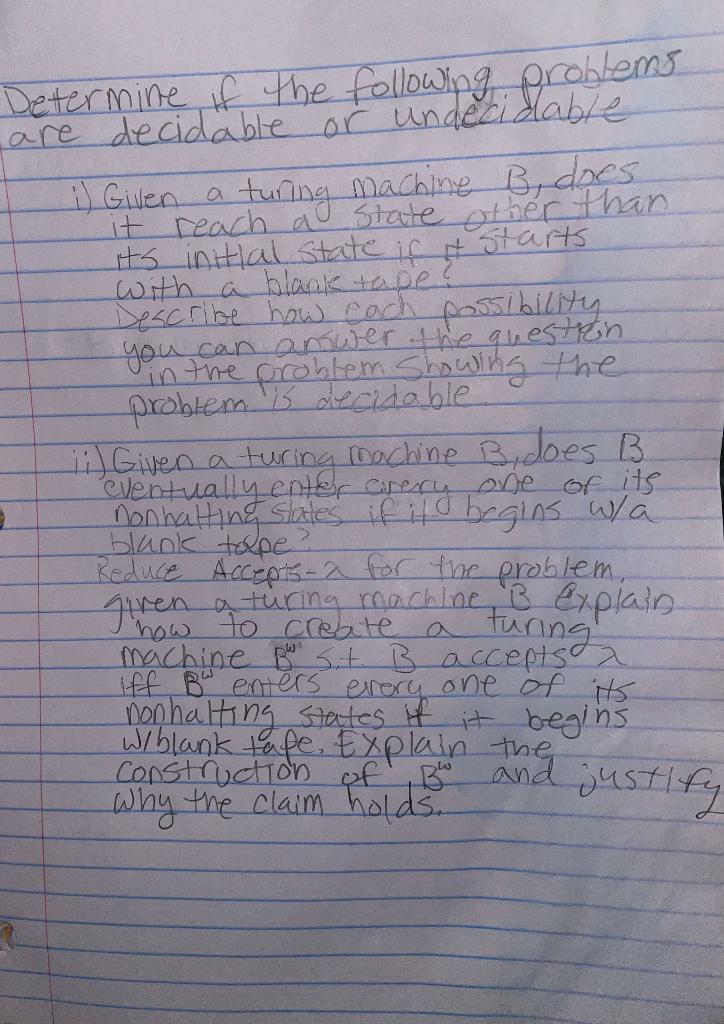 Determine if the following problems
are decidable or undecidable
i) Given a turing machine B, does
it reach a state other than
its initial state if it starts
with a blank tape?
Describe how each possibility
you can answer the question
in the problem showing the
problem is decidable.
ii) Given a turing machine B, does B
eventually enter every one of its
nonhalting states if it begins w/a
blank tape?
Reduce Accepts-λ for the problem,
given a turing machine B explain
how to create a turing
machine Bʷ s.t. B accepts λ
iff Bʷ enters every one of its
nonhalting states if it begins
w/blank tape. Explain the
construction of Bʷ and justify
why the claim holds.